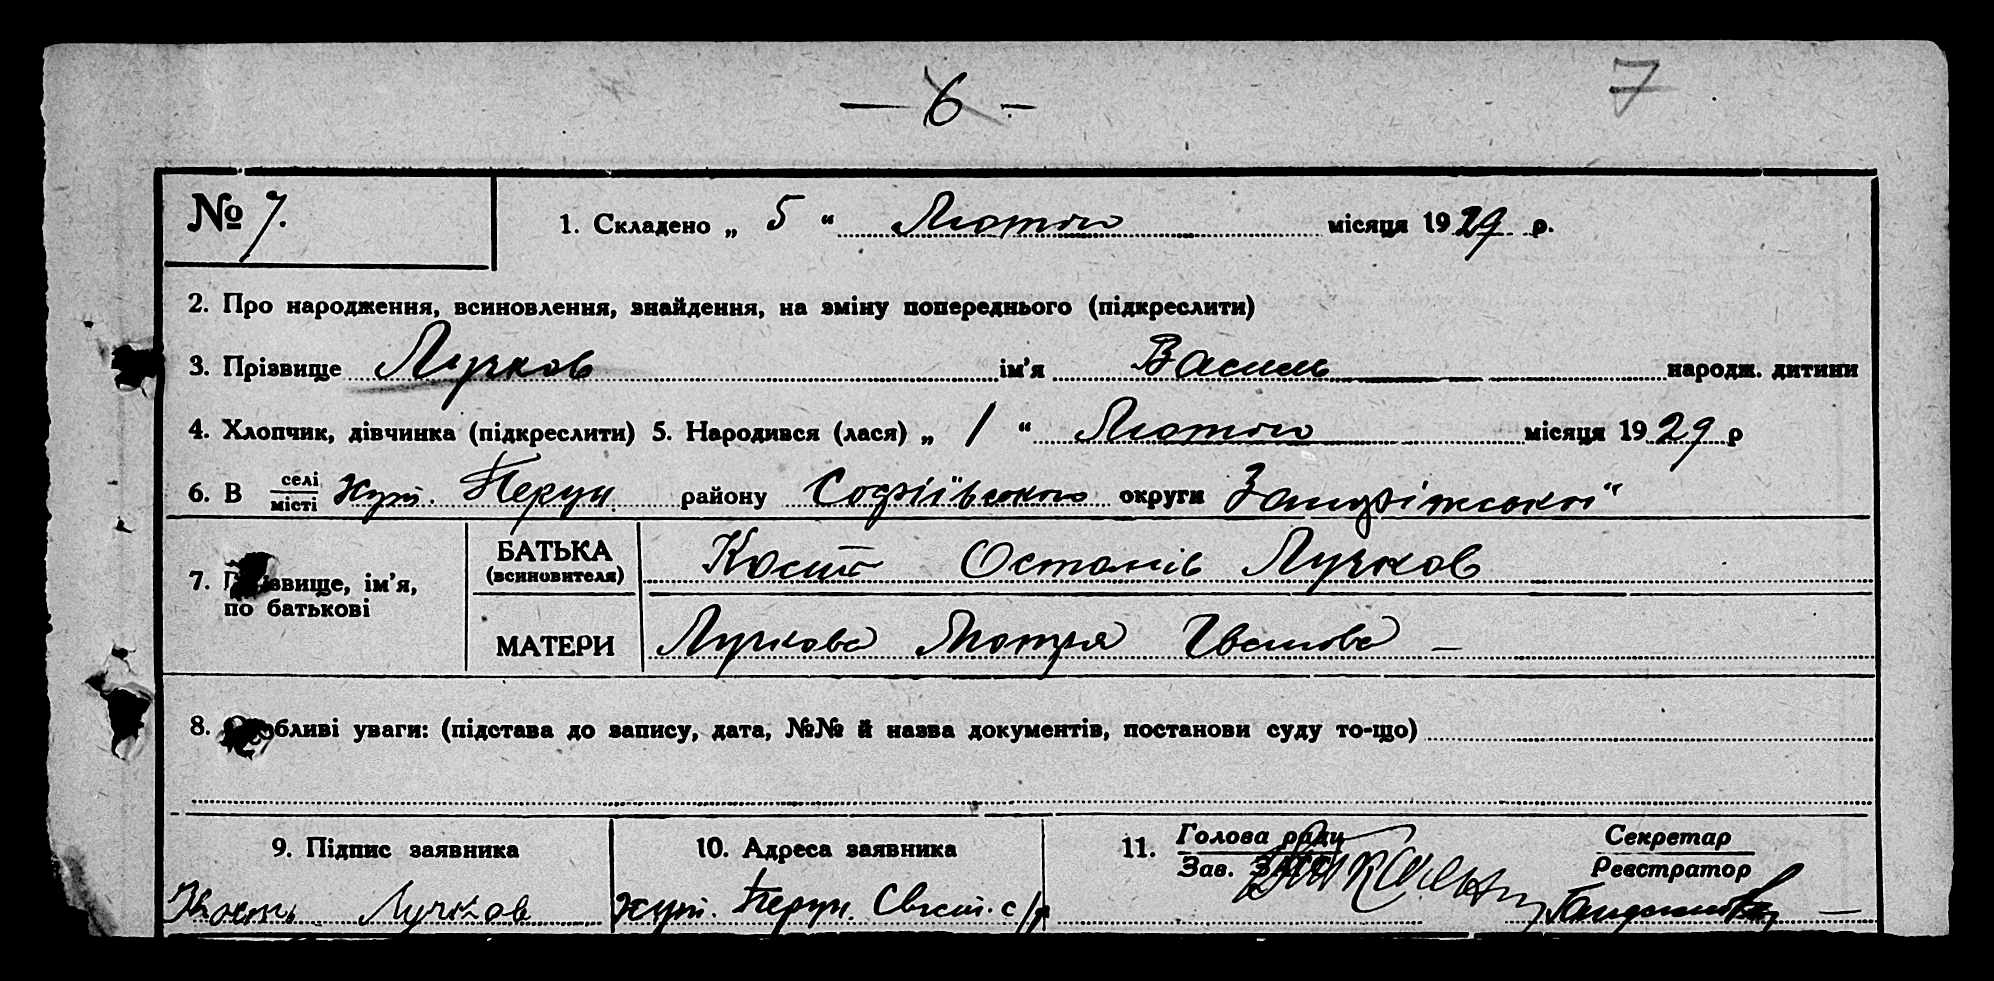 — 6 — 7
№ 7. 1. Складено „ 5 “ Лютого місяця 1929 р.
2. Про народження, всиновлення, знайдення, на зміну попереднього (підкреслити)
3. Прізвище Лучков ім’я Василь народж. дитини
4. Хлопчик, дівчинка (підкреслити) 5. Народився (лася) „ 1 “ Лютого місяця 1929 р
6. В селі місті хут. Перун району Софіївського округи Запоріжської
7. Прізвище, ім’я, по батькові
БАТЬКА (всиновителя) Кость Остапів Лучков
МАТЕРИ Лучкова Мотря Іванова —
8. Особливі уваги: (підстава до запису, дата, №№ й назва документів, постанови суду то-що)
9. Підпис заявника 10. Адреса заявника 11. Голова ради Секретар
Зав. Реєстратор
Кость Лучков хут. Перун. с/р